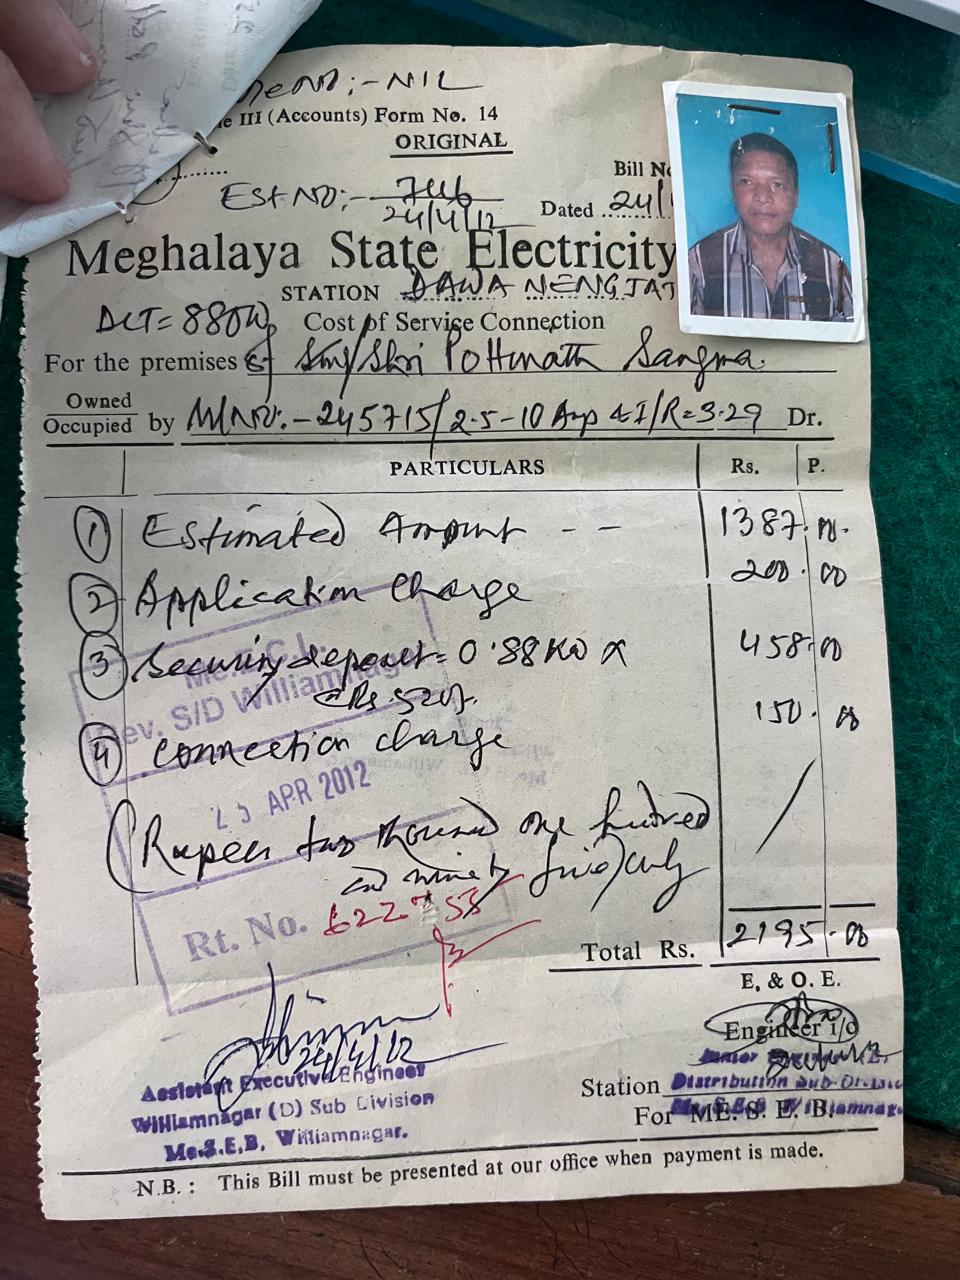 NO:- NIL
III (Accounts) Form No. 14
ORIGINAL
Bill
Est NO:- 746
24/4/12
Dated 24/
Meghalaya State Electricity
STATION DAWA NENGJAT
Cost of Service Connection
For the premises of Smy/Shri Pothinath Sangma.
Owned
Occupied by M/NO:- 245715/2.5-10 Amp & I/R=3.29 Dr.
PARTICULARS Rs. P.
1 Estimated Amount - - 1387.00
2 Application Charge 200.00
3 Security deposit = 0.88 KW x 458.00
@ Rs. 520/.
4 Connection charge 150.00
(Rupees two thousand one hundred
and ninety five) only
Me.E.C.L.
Rev. S/D Williamnagar
APR 2012
Rt. No. 622753
Total Rs. 2195.00
E. & O. E.
Engineer i/c
24/4/12
Assistant Executive Engineer
Williamnagar (D) Sub Division
Me.S.E.B, Williamnagar.
Junior
Station Distribution Sub-Division
For ME. S. E. B.
Me.S.E.B Williamnagar
N.B. : This Bill must be presented at our office when payment is made.